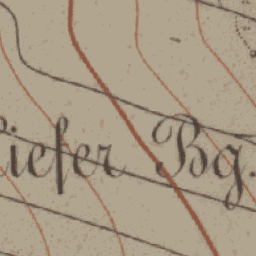 iefer Bg.